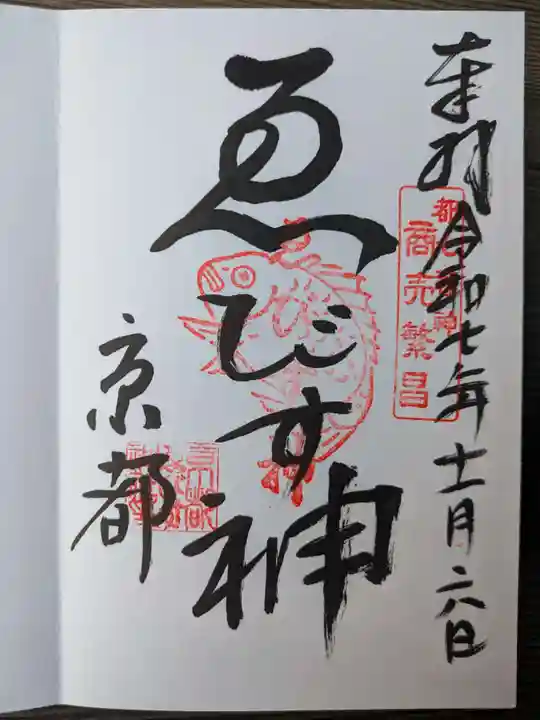 奉拝 令和七年十一月二六日
都
神
商売繁昌
ゑびす神
京都